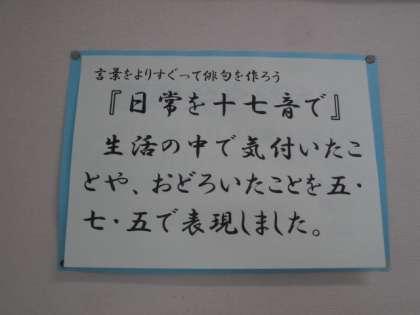 言葉をよりすぐって俳句を作ろう
『日常を十七音で』
生活の中で気付いたこ
とや、おどろいたことを五・
七・五で表現しました。